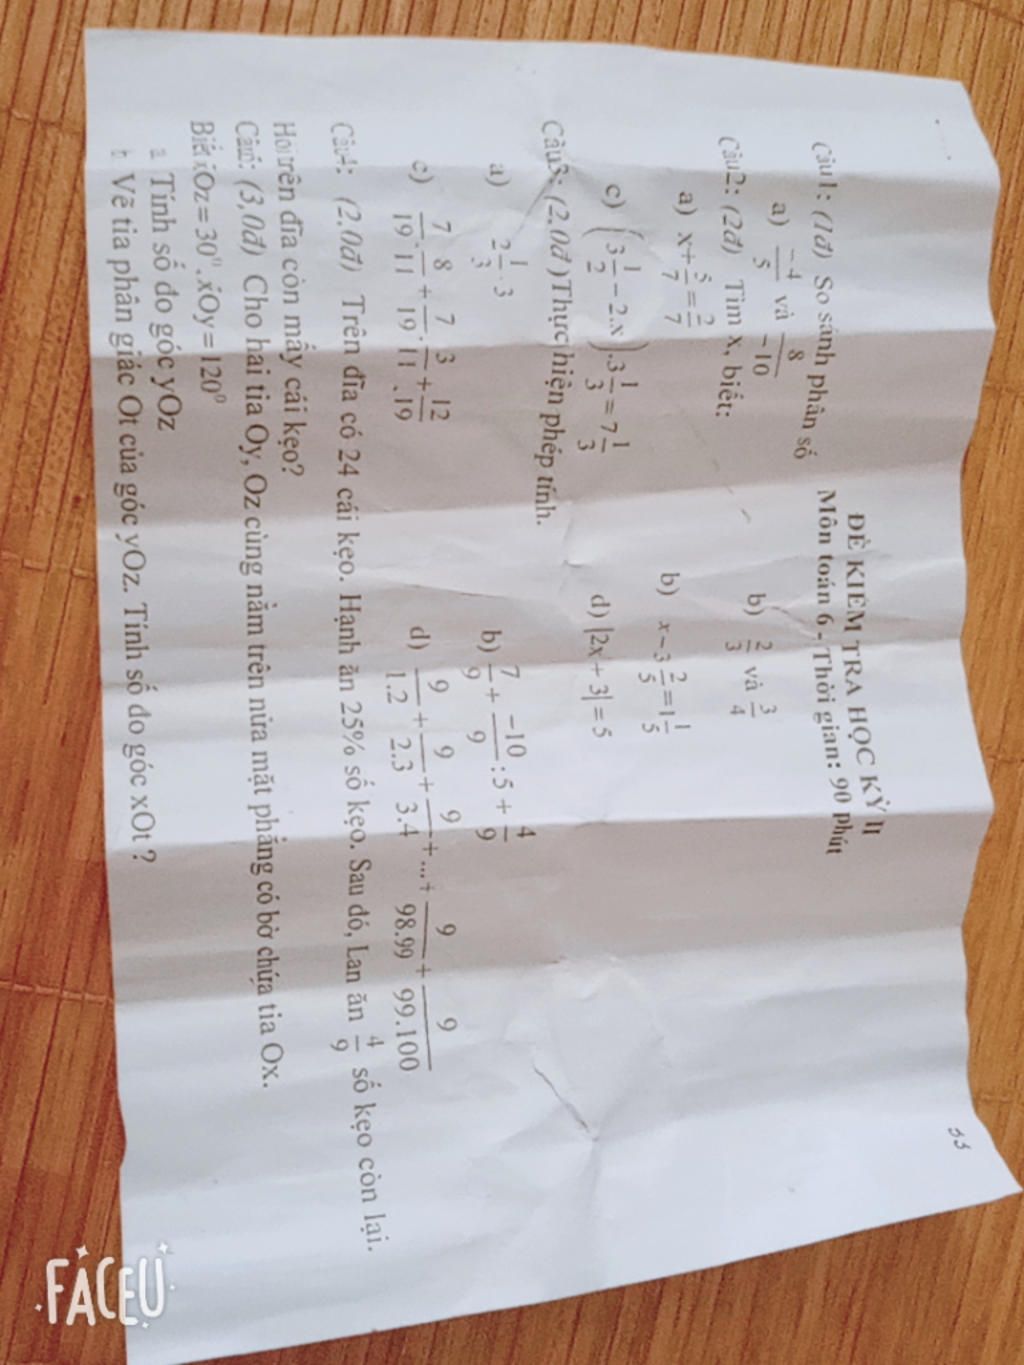 33
ĐỀ KIỂM TRA HỌC KỲ II
Môn toán 6 - Thời gian: 90 phút
Câu1: (1đ) So sánh phân số
a) -4/5 và 8/-10 b) 2/3 và 3/4
Câu2: (2đ) Tìm x, biết:
a) x+5/7=2/7 b) x-3 2/5=1 1/5
c) (3 1/2-2.x).3 1/3=7 1/3 d) |2x+3|=5
Câu3: (2,0đ)Thực hiện phép tính.
a) 2 1/3.3 b) 7/9+-10/9:5+4/9
c) 7/19.8/11+7/19.3/11+12/19 d) 9/1.2+9/2.3+9/3.4+...+9/98.99+9/99.100
Câu4: (2,0đ) Trên đĩa có 24 cái kẹo. Hạnh ăn 25% số kẹo. Sau đó, Lan ăn 4/9 số kẹo còn lại.
Hỏi trên đĩa còn mấy cái kẹo?
Câu5: (3,0đ) Cho hai tia Oy, Oz cùng nằm trên nửa mặt phẳng có bờ chứa tia Ox.
Biết xOz=30⁰.xOy=120⁰
a Tính số đo góc yOz
b Vẽ tia phân giác Ot của góc yOz. Tính số đo góc xOt ?
FACEU